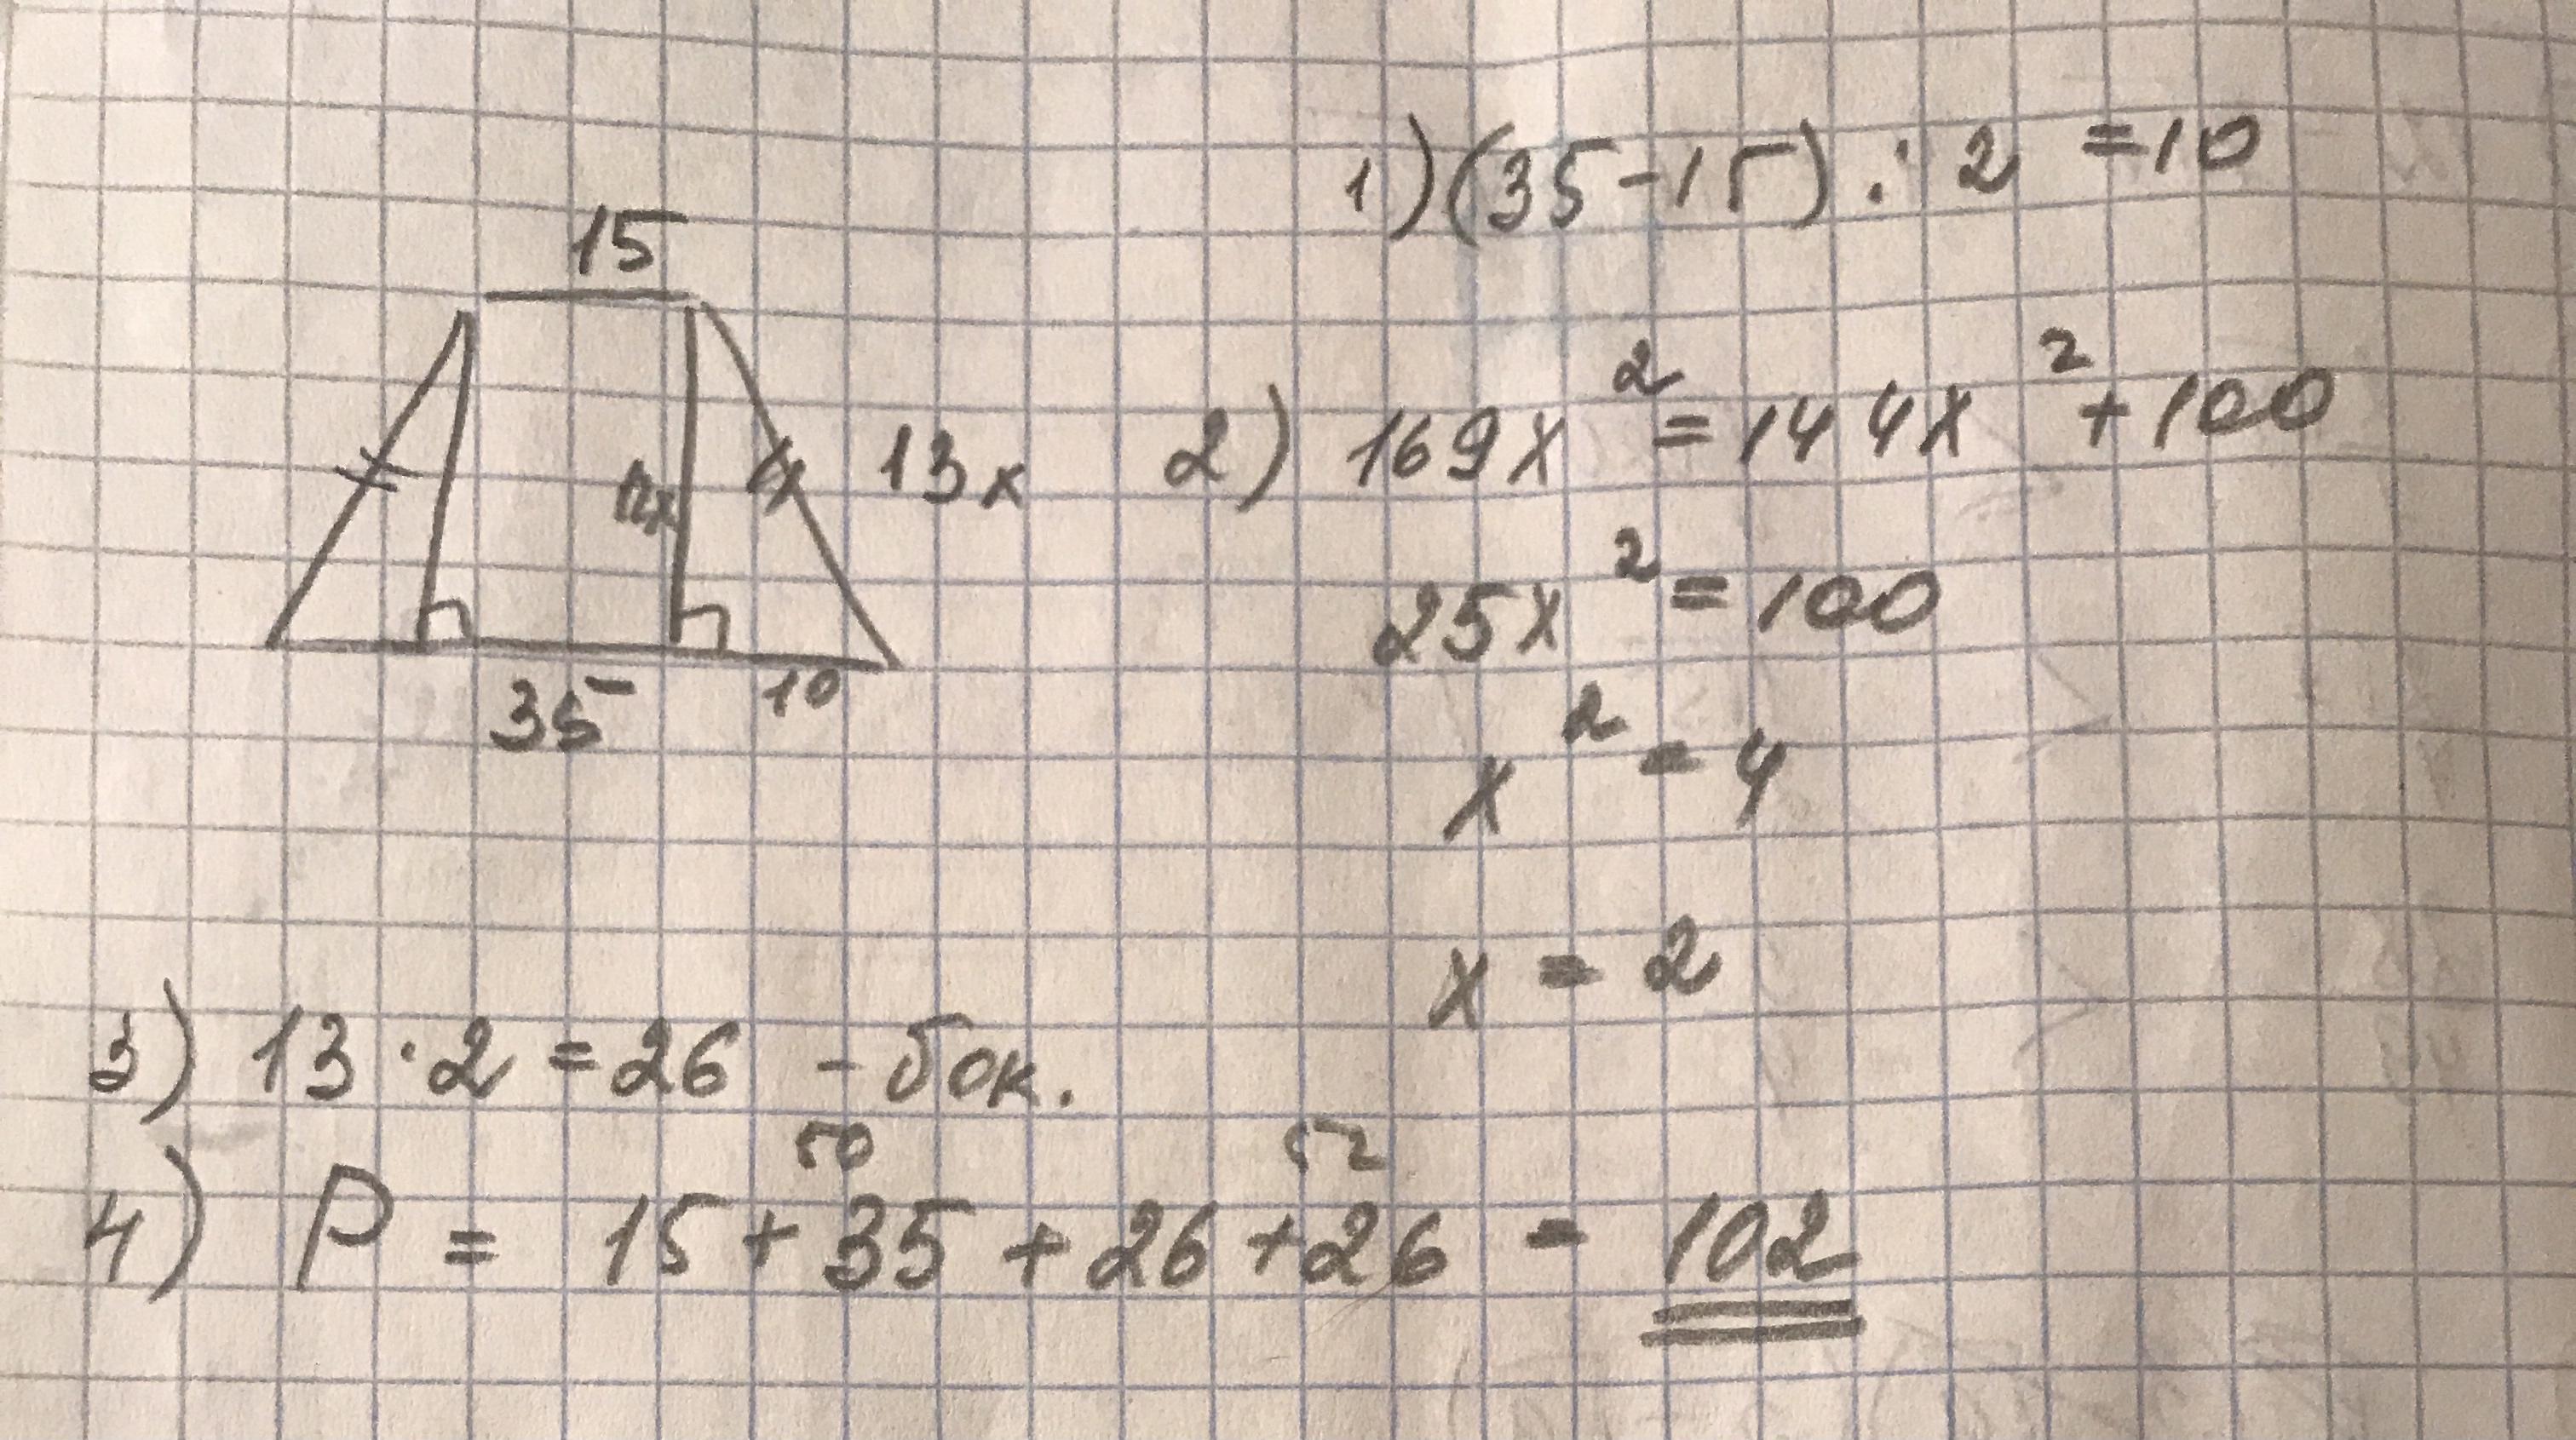 15
12x
13x
35
10
1) (35-15) : 2 = 10
2) 169x² = 144x² + 100
25x² = 100
x² = 4
x = 2
3) 13 · 2 = 26 - бок.
50 52
4) P = 15 + 35 + 26 + 26 = 102